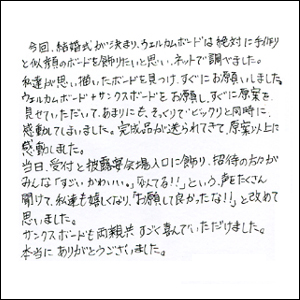 今回、結婚式が決まり、ウェルカムボードは絶対に手作り
と似顔のボードを飾りたいと思い、ネットで調べました。
私達が思い描いたボードを見つけ、すぐにお願いしました。
ウェルカムボード+サンクスボードをお願し、すぐに原案を
見せていただいて、あまりにも、そっくりでビックリと同時に、
感動してしまいました。完成品が送られてきて、原案以上に
感動しました。
当日、受付と披露宴会場入口に飾り、招待の方々が
みんな「すごい、かわいい。」「似てる!!」という声をたくさん
聞けて、私達も嬉しくなり、「お願して良かったな!!」と改めて
思いました。
サンクスボードも両親共すごく喜んでいただけました。
本当にありがとうございました。